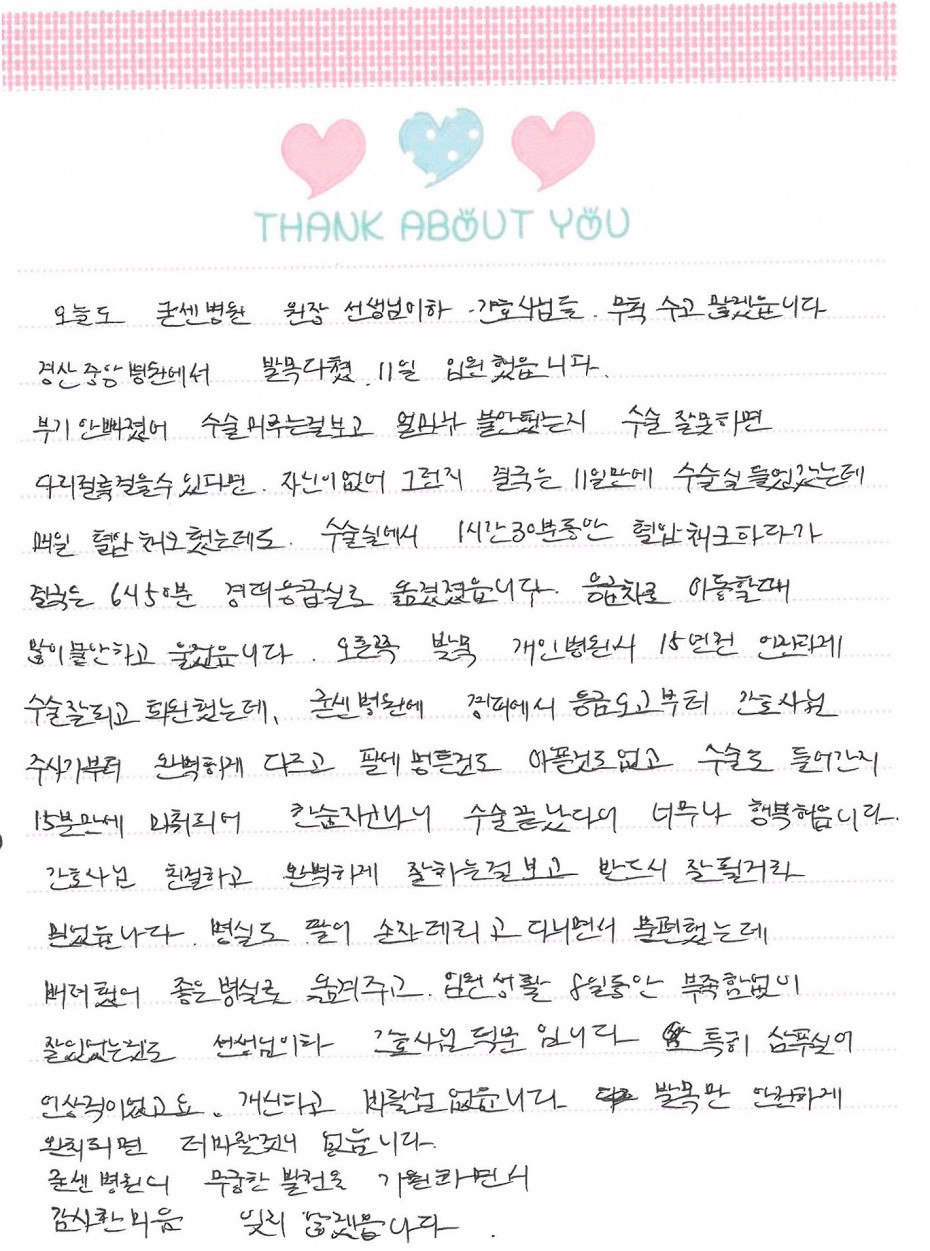 THANK ABOUT YOU
오늘도 굳센병원 원장 선생님이하 간호사님들. 무척 수고 많겠읍니다
경산중앙병원에서 발목다쳤. 11일 입원했읍니다.
부기 안빠졌어 수술미루는걸보고 얼마나 불안했는지 수술 잘못하면
다리절룩걸을수 있다면. 자신이없어 그런지 결국은 11일만에 수술실 들었갔는데
매일 혈압체크했는데도. 수술실에서 1시간30분동안 혈압체크하다가
결국은 6시50분 경대응급실로 옮겼졌읍니다. 응급차로 이동할때
많이불안하고 울었읍니다. 오른쪽 발목 개인병원서 15년전 안전하게
수술잘되고 퇴원했는데, 굳센병원에 경대에서 응급오고부터 간호사님
주사기부터 완벽하게 다르고 팔에 멍든것도 아픈것도없고 수술도 들어간지
15분만에 마취되어 한숨자고나니 수술끝났다며 너무나 행복했읍니다.
간호사님 친절하고 완벽하게 잘하는걸 보고 반드시 잘될거라
믿었읍니다. 병실도 딸이 손자데리고 다니면서 불편했는데
배려했어 좋은병실로 옮겨주고. 입원생활 8일동안 부족함없이
잘있었는것도 선생님이하 간호사님 덕분 입니다 특히 샴푸실이
인상적이었고요. 개선하고 바랄건 없읍니다 발목만 안전하게
완치되면 더바랄것이 없읍니다.
굳센병원의 무궁한 발전을 기원하면서
감사한마음 잊지 않겠읍니다.